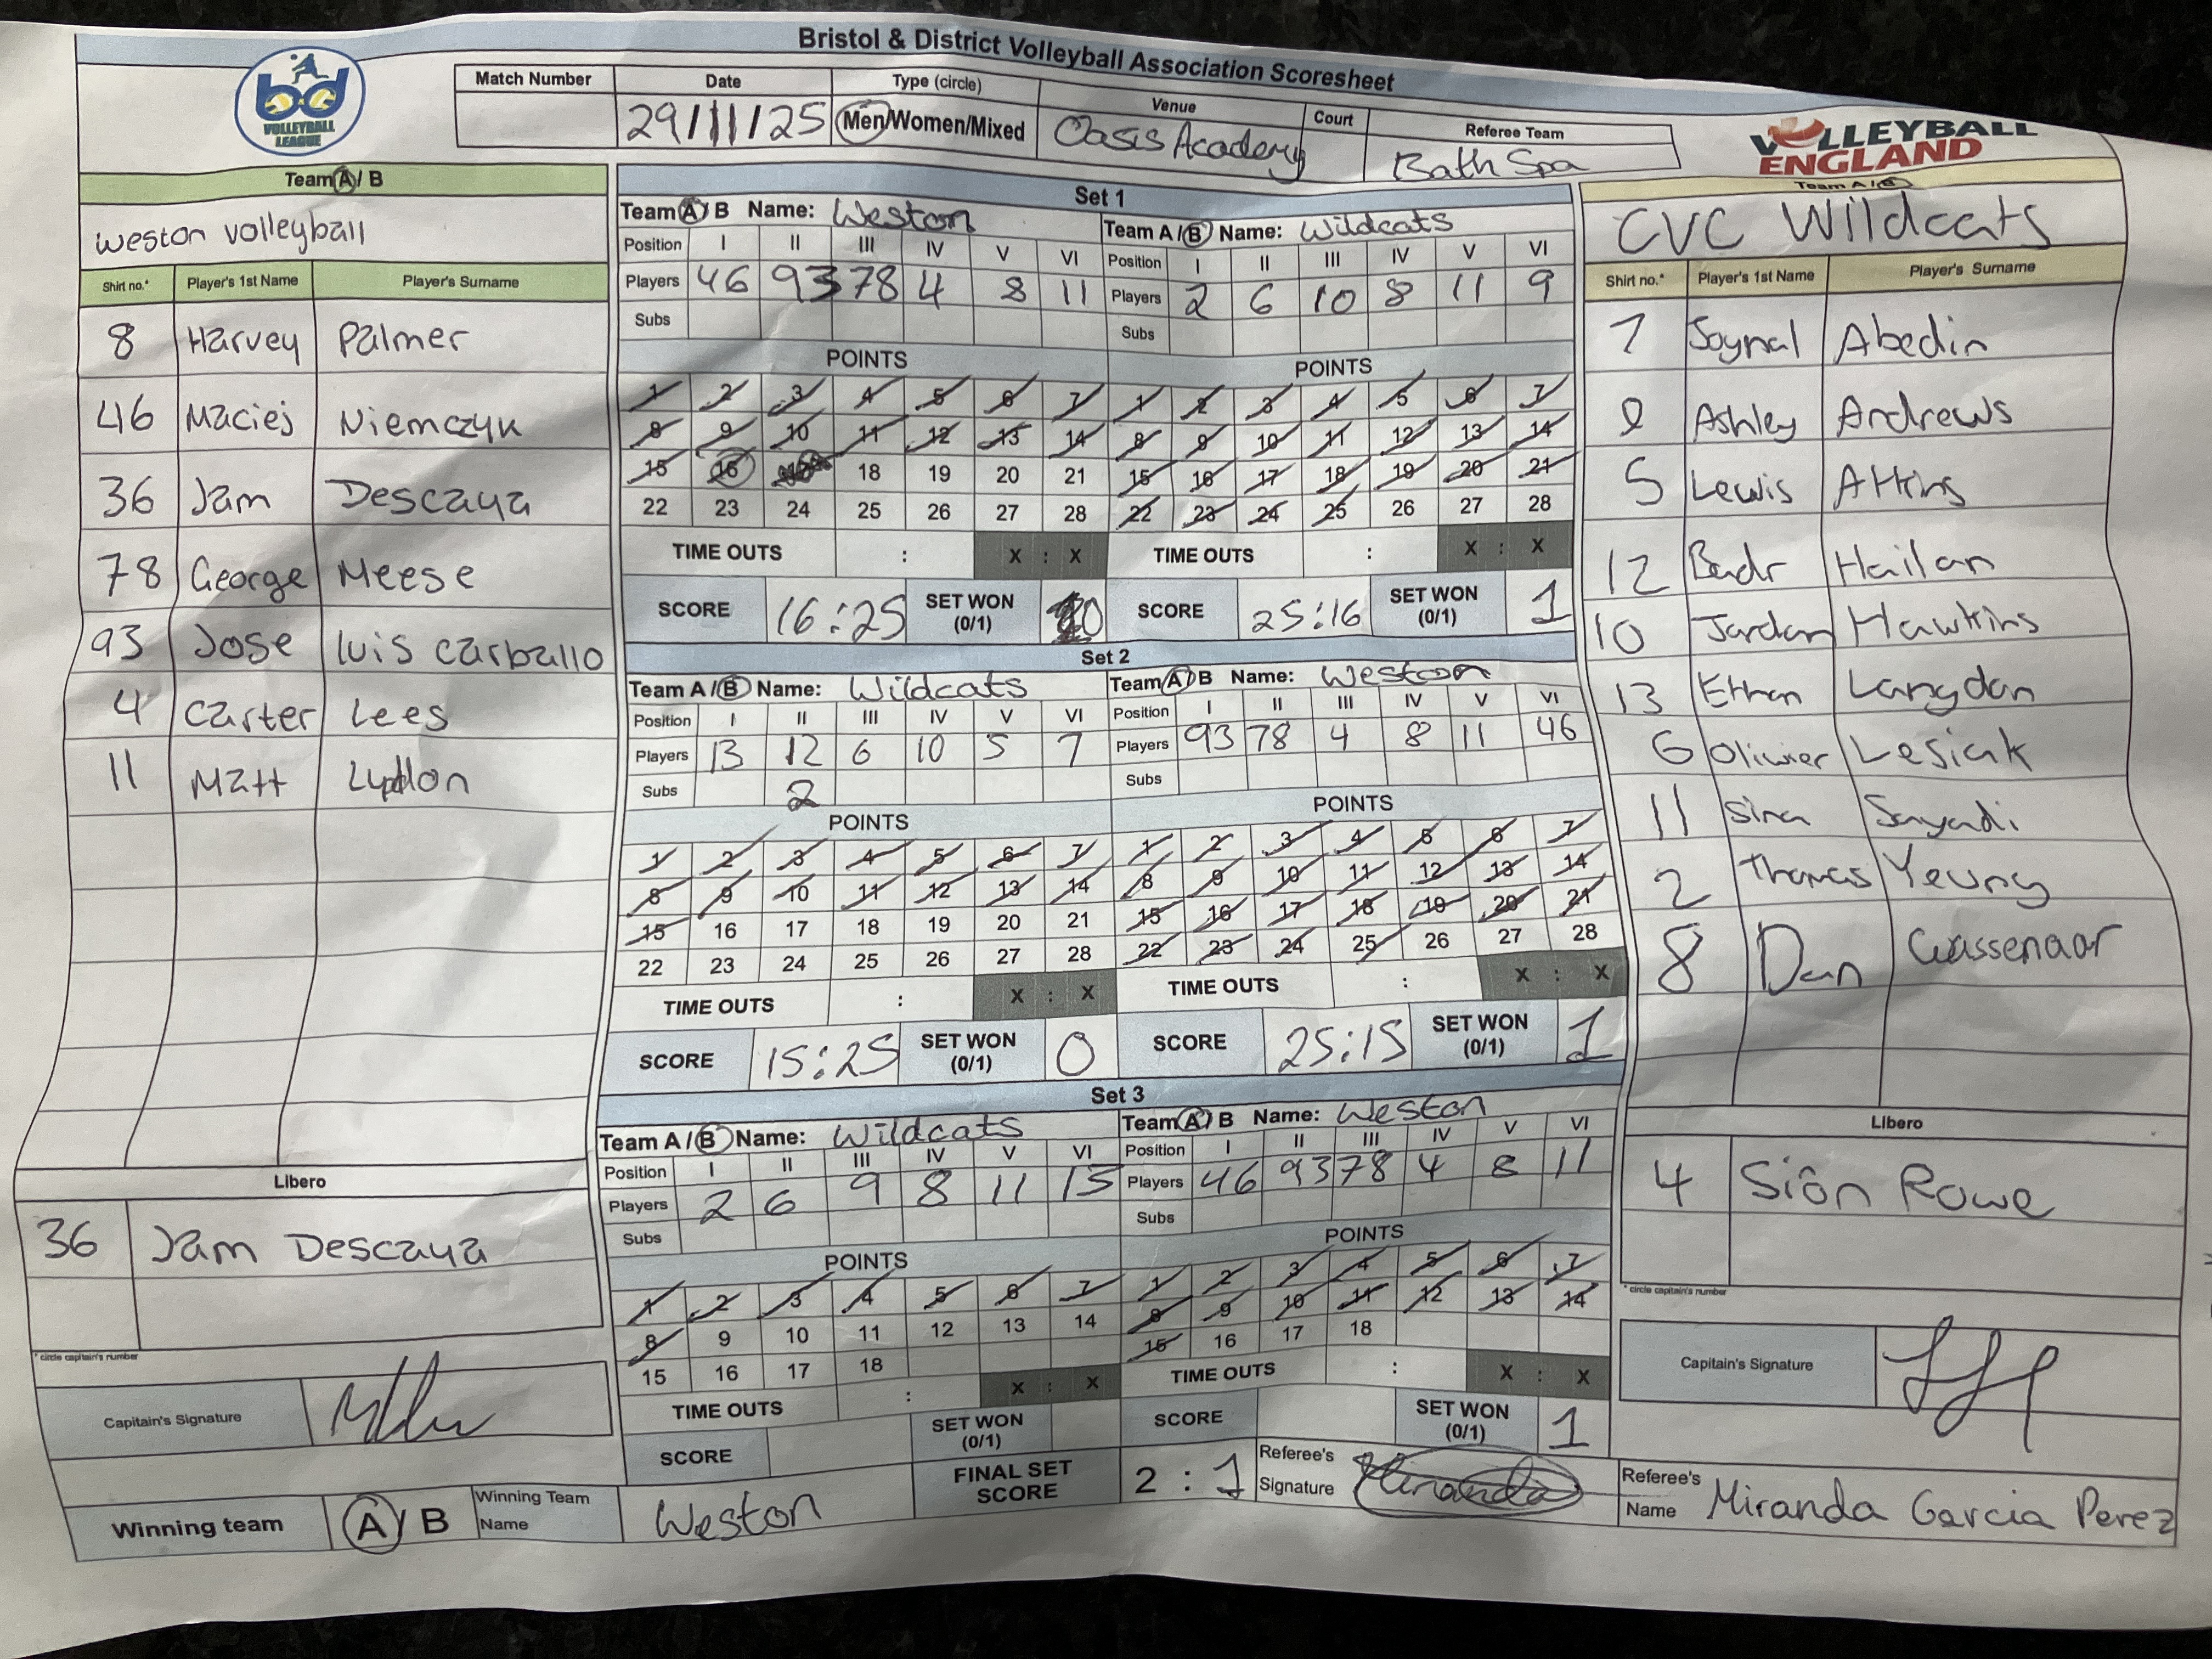 Bristol & District Volleyball Association Scoresheet
bd VOLLEYBALL LEAGUE
Match Number Date Type (circle) Venue Court Referee Team
29/11/25 Men/Women/Mixed Oasis Academy Bath Spa
VOLLEYBALL ENGLAND
Team A / B
weston volleyball
Shirt no.* Player's 1st Name Player's Surname
8 Harvey Palmer
46 Maciej Niemczyk
36 Jam Descaya
78 George Meese
93 Jose luis carballo
4 Carter Lees
11 Matt Lyddon
Libero
36 Jam Descaya
* circle capitain's number
Capitain's Signature
Set 1
Team A / B Name: Weston
Position I II III IV V VI
Players 46 93 78 4 8 11
Subs
POINTS
1 2 3 4 5 6 7
8 9 10 11 12 13 14
15 16 18 19 20 21
22 23 24 25 26 27 28
TIME OUTS : X : X
SCORE 16:25 SET WON (0/1) 0
Team A / B Name: Wildcats
Position I II III IV V VI
Players 2 6 10 8 11 9
Subs
POINTS
1 2 3 4 5 6 7
8 9 10 11 12 13 14
15 16 17 18 19 20 21
22 23 24 25 26 27 28
TIME OUTS : X : X
SCORE 25:16 SET WON (0/1) 1
Set 2
Team A / B Name: Wildcats
Position I II III IV V VI
Players 13 12 6 10 5 7
Subs 2
POINTS
1 2 3 4 5 6 7
8 9 10 11 12 13 14
15 16 17 18 19 20 21
22 23 24 25 26 27 28
TIME OUTS : X : X
SCORE 15:25 SET WON (0/1) 0
Team A / B Name: Weston
Position I II III IV V VI
Players 93 78 4 8 11 46
Subs
POINTS
1 2 3 4 5 6 7
8 9 10 11 12 13 14
15 16 17 18 19 20 21
22 23 24 25 26 27 28
TIME OUTS : X : X
SCORE 25:15 SET WON (0/1) 1
Set 3
Team A / B Name: Wildcats
Position I II III IV V VI
Players 2 6 9 8 11 13
Subs
POINTS
1 2 3 4 5 6 7
8 9 10 11 12 13 14
15 16 17 18
TIME OUTS : X : X
SCORE SET WON (0/1)
Team A / B Name: Weston
Position I II III IV V VI
Players 46 93 78 4 8 11
Subs
POINTS
1 2 3 4 5 6 7
8 9 10 11 12 13 14
15 16 17 18
TIME OUTS : X : X
SCORE SET WON (0/1) 1
Team A / B
CVC Wildcats
Shirt no.* Player's 1st Name Player's Surname
7 Joynal Abedin
9 Ashley Andrews
5 Lewis Atkins
12 Badr Hailan
10 Jordan Hawkins
13 Ethan Langdon
6 Oliwier Lesiak
11 Sina Sayadi
2 Thomas Yeung
8 Dan Wassenaar
Libero
4 Siôn Rowe
* circle capitain's number
Capitain's Signature
Winning team A / B Winning Team Name Weston FINAL SET SCORE 2 : 1 Referee's Signature Miranda Referee's Name Miranda Garcia Perez